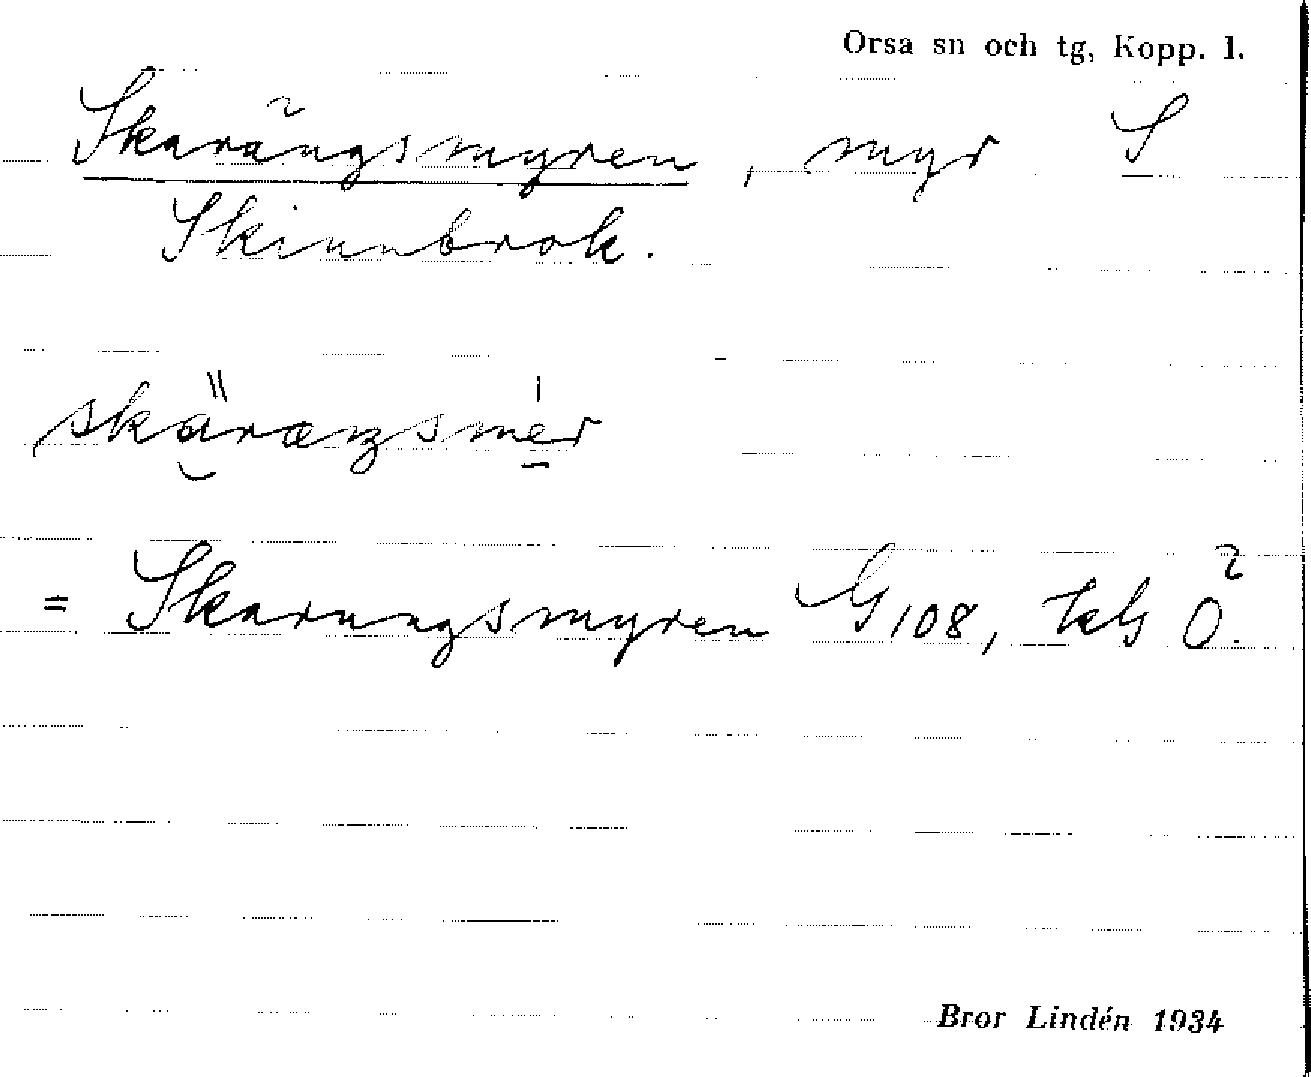 Orsa sn och tg, Kopp. l.
Skarängsmyren, myr S
Skinnbrok.
skäræŋsmer
= Skarungsmyren G 108, kbl Ö.
Bror Lindén 1934